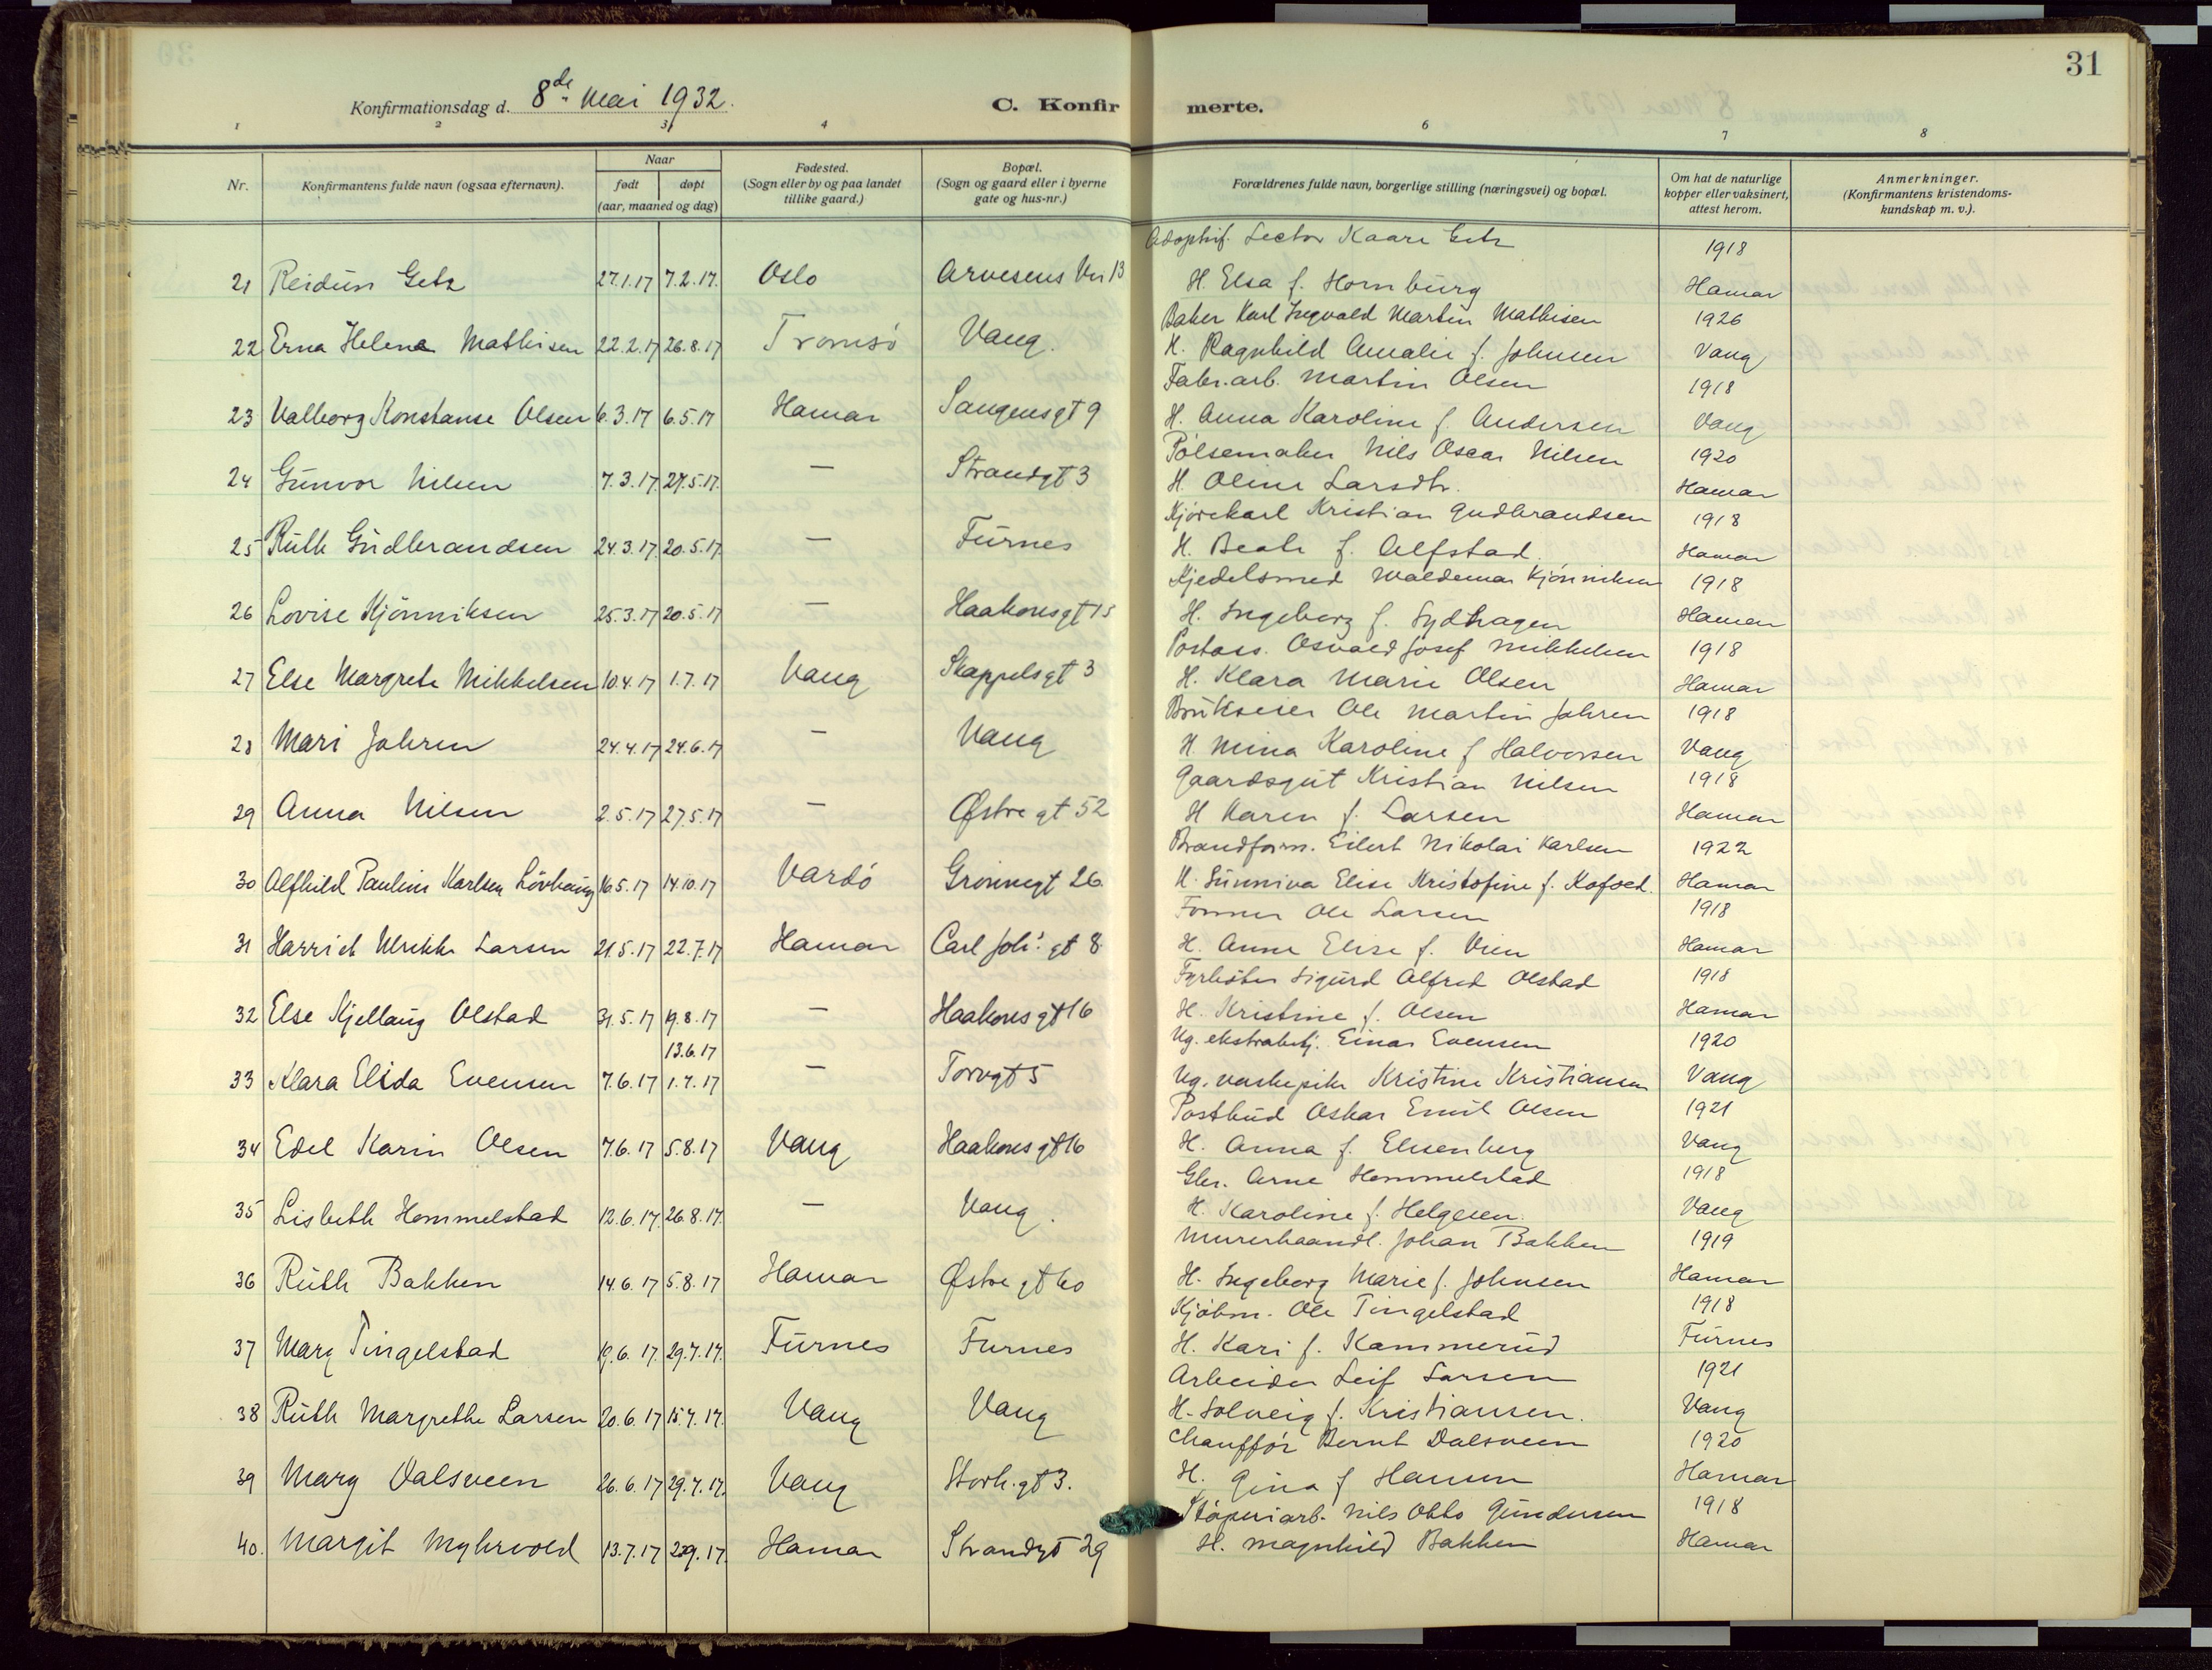 31
Konfirmationsdag d. 8de Mai 1932.
C. Konfirmerte.
1 2 3 4 6 7 8
Nr.
Konfirmantens fulde navn (ogsaa efternavn).
Naar
født døpt
(aar, maaned og dag)
Fødested.
(Sogn eller by og paa landet
tillike gaard.)
Bopæl.
(Sogn og gaard eller i byerne
gate og hus-nr.)
Forældrenes fulde navn, borgerlige stilling (næringsvei) og bopæl.
Om hat de naturlige
kopper eller vaksinert,
attest herom.
Anmerkninger.
(Konfirmantens kristendoms-
kundskap m. v.).
Adoptivf. Lector Kaare Getz 1918
21 Reidun Getz 27.1.17 7.2.17. Oslo Arvesens Vei 13 H. Elsa f. Hornburg Hamar
Baker Karl Ingvald Martin Mathisen 1926
22 Erna Helene Mathisen 22.2.17 26.8.17 Tromsö Vang. H. Ragnhild Amalie f. Johnsen Vang
Fabr.arb. Martin Olsen 1918
23 Valborg Konstanse Olsen 6.3.17 6.5.17 Hamar Saugensgt 9 H. Anna Karoline f. Andersen Vang
Pölsemaker Nils Oscar Nilsen 1920
24 Gunvor Nilsen 7.3.17. 27.5.17. — Strandgt 3 H. Oline Larsdtr. Hamar
Kjörekarl Kristian Gudbrandsen 1918
25 Ruth Gudbrandsen 24.3.17. 20.5.17. — Furnes H. Beate f. Alfstad. Hamar
Kjedelsmed Waldemar Kjönniksen 1918
26 Lovise Kjönniksen 25.3.17 20.5.17 — Haakonsgt 15 H. Ingeborg f. Sydhagen Hamar
Postass. Osvald Josef Mikkelsen 1918
27 Else Margrete Mikkelsen 10.4.17 1.7.17 Vang Skappelsgt 3 H. Klara Marie Olsen Hamar
Brukseier Ole Martin Jahren 1918
28 Mari Jahren 24.4.17 24.6.17 — Vang H. Mina Karoline f Halvorsen Vang
Gaardsgut Kristian Nilsen 1918
29 Anna Nilsen 2.5.17 27.5.17 — Østre gt 52 H Karen f. Larsen Hamar
Brandform. Eilert Nikolai Karlsen 1922
30 Alfhild Pauline Karlsen Lövhaug 16.5.17 14.10.17 Vardö Grönnegt 26 H. Sunniva Elise Kristofine f. Kofoed. Hamar
Former Ole Larsen 1918
31 Harriet Ulrikke Larsen 21.5.17 22.7.17 Hamar Carl Joh's gt 8 H. Anne Elise f. Vien Hamar
Fyrböter Sigurd Alfred Olstad 1918
32 Else Kjellaug Olstad 31.5.17 19.8.17 — Haakonsgt 16 H. Kristine f. Olsen Hamar
13.6.17 Ug. ekstrabetj. Einar Evensen 1920
33 Klara Elida Evensen 7.6.17 1.7.17 — Torvgt 5 Ug. vaskepike Kristine Kristiansen Vang
Postbud Oskar Emil Olsen 1921
34 Edel Karin Olsen 7.6.17 5.8.17 Vang Haakonsgt 16 H. Anna f. Elusenberg Vang
Gbr. Arne Hommelstad 1918
35 Lisbeth Hommelstad 12.6.17. 26.8.17. — Vang. H. Karoline f. Helgesen. Vang
Murerhaandl. Johan Bakken 1919
36 Ruth Bakken 14.6.17 5.8.17 Hamar Østre gt 60 H. Ingeborg Marie f. Johnsen Hamar
Kjöbm. Ole Tingelstad 1918
37 Mary Tingelstad 19.6.17. 29.7.17. Furnes Furnes H. Kari f. Kammerud Furnes
Arbeider Leif Larsen 1921
38 Ruth Margrethe Larsen 20.6.17 15.7.17. Vang Vang H. Solveig f. Kristiansen. Vang
Chefför Bernt Dalsveen 1920
39 Mary Dalsveen 26.6.17 29.7.17. Vang Storh.gt 3. H. Gina f Hansen Hamar
Stöperiarb. Nils Otto Gundersen 1918
40. Margit Myhrvold 13.7.17 2.9.17. Hamar Strandgt 29 H. Magnhild Bakken Hamar